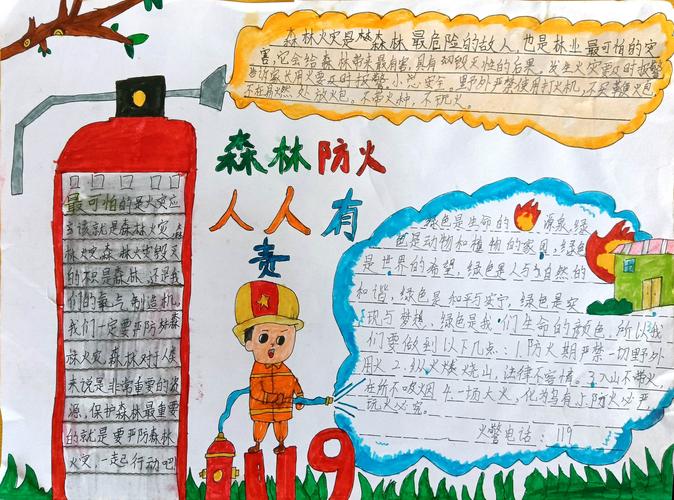 森林火灾是森林最危险的敌人,也是林业最可怕的灾
害,它会给森林带来最有害,具有毁灭性的后果。发生火灾要及时报警
告诉家长用火要及时报警,小心安全,野外严禁使用打火机,不买
不在自然处放火包,不带火种,不玩火。
森林防火
人人有
责
最可怕的是火灾应
当该就是森林火灾,森
林火灾森林火灾毁灭
的不只是森林,还是我
们的氧气制造机。
我们一定要严防森
林火灾。森林对于人类
来说是非常重要的资
源,保护森林最重要
的就是要严防森林
火灾,一起行动吧!
绿色是生命的源泉,绿
色是动物和植物的家园,绿色
是世界的希望,绿色是人与自然的
和谐,绿色是和平与安宁,绿色是实
现与梦想,绿色是我们生命的颜色,所以我
们要做到以下几点:1.防火期严禁一切野外
用火 2.纵火烧山,法律不容情。3.入山不带火,
在所不吸烟 4.一场大火,化为乌有 5.防火必严
玩火必究。
火警电话:119
119